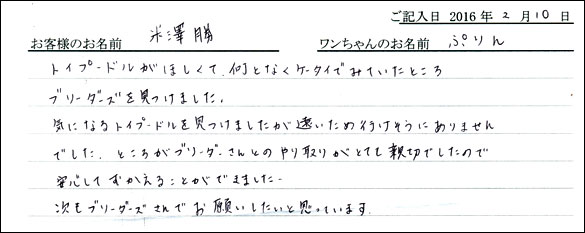 ご記入日 2016 年 2 月 10 日
お客様のお名前 米澤 勝 ワンちゃんのお名前 ぷりん
トイプードルがほしくて、何となくケータイでみていたところ
ブリーダーズを見つけました。
気になるトイプードルを見つけましたが遠いため行けそうにありません
でした。ところがブリーダーさんとのやり取りがとても親切でしたので
安心してむかえることができました。
次もブリーダーズさんでお願いしたいと思っています。